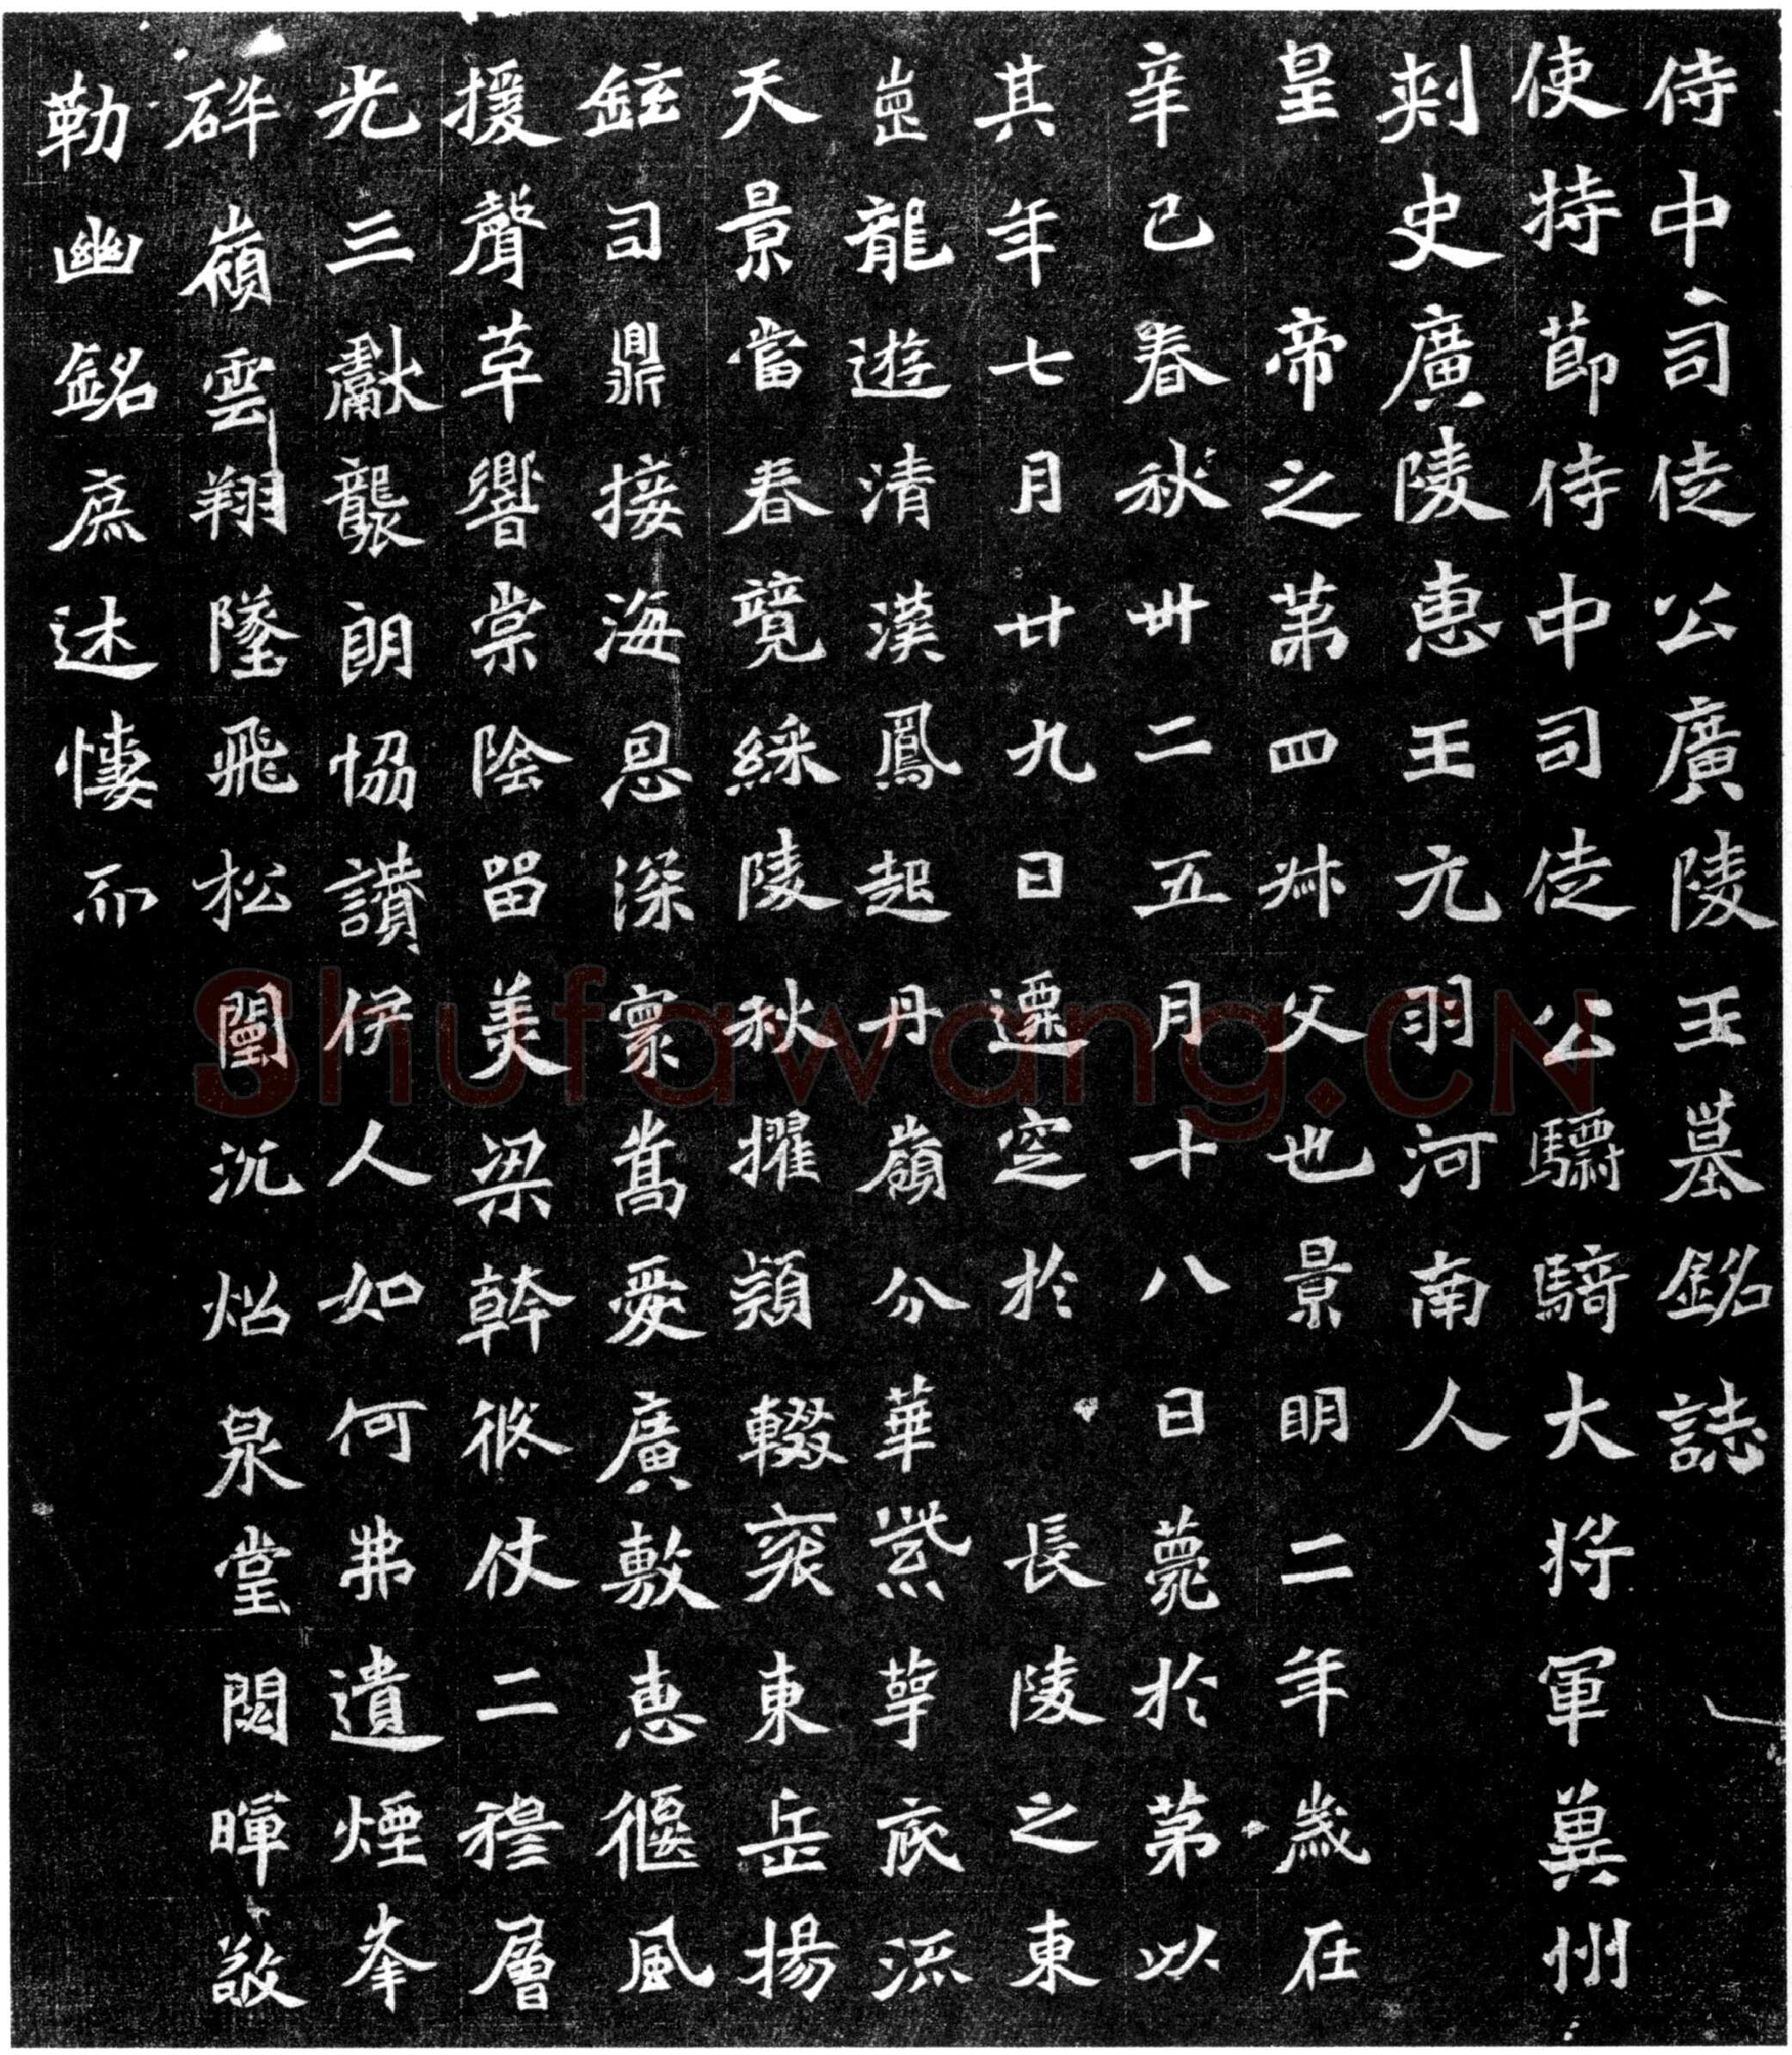 侍中司徒公廣陵王墓銘誌
使持節侍中司徒公驃騎大將軍冀州
刺史廣陵惠王元羽河南人
皇帝之第四叔父也景明二年歲在
辛巳春秋卅二五月十八日薨於第以
其年七月廿九日遷窆於長陵之東
崗龍遊清漢鳳起丹嶺分華紫萼底流
天景當春競綵陵秋擢穎輟袞東岳揚
鉉司鼎接海恩深寰嵩愛廣敷惠偃風
援聲草響棠陰留美梁幹脩仗二穆層
光三獻襲朗協讚伊人如何弗遺煙峯
碎嶺雲翔墜飛松闉沉炤泉堂閟暉敬
勒幽銘庶述悽而
Shufawang.CN